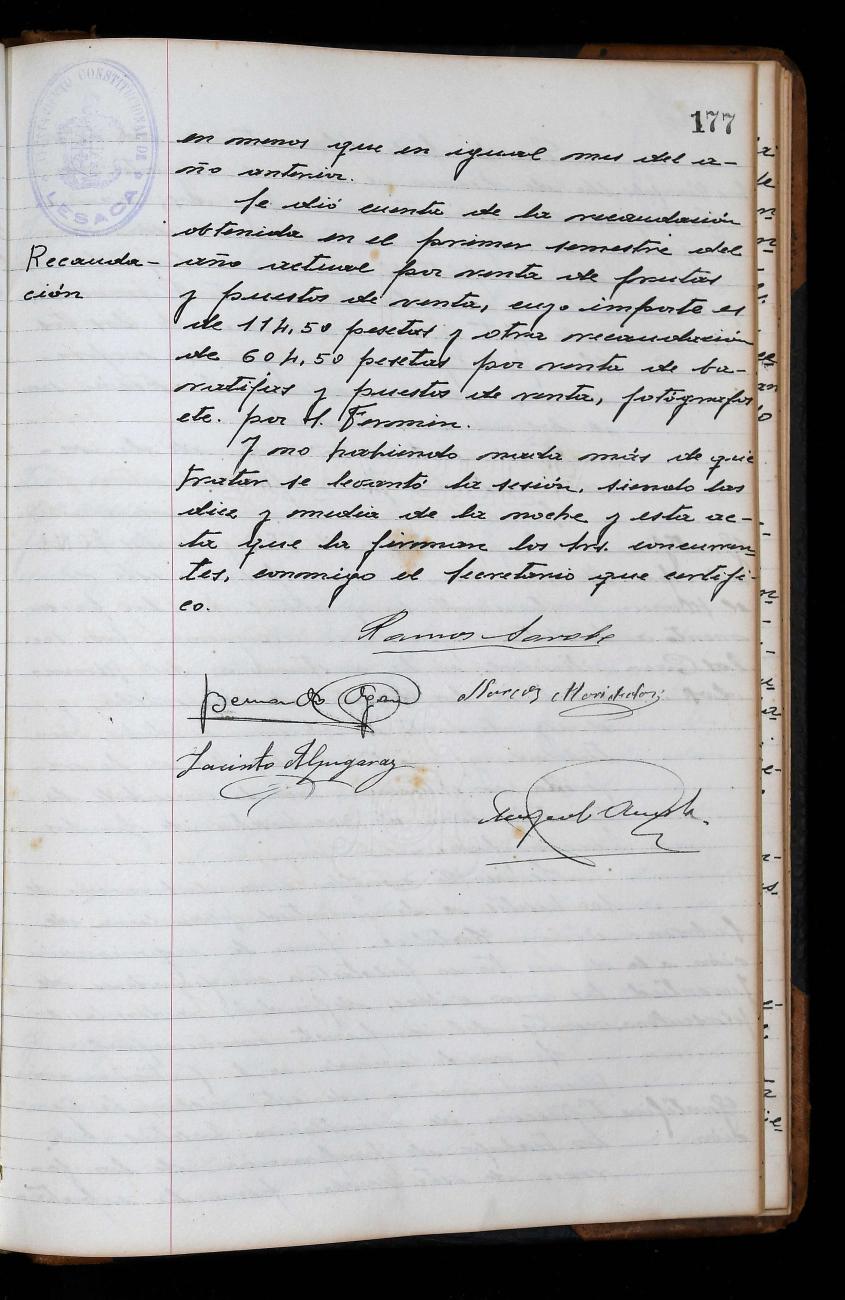 177
AYUNTAMIENTO CONSTITUCIONAL DE
LESACA
en menos que en igual mes del a-
ño anterior.
Se dió cuenta de la recaudación
obtenida en el primer semestre del
Recauda-
ción
año actual por venta de frutas
y puestos de venta, cuyo importe es
de 114,50 pesetas y otra recaudación
de 604,50 pesetas por venta de ba-
ratijas y puestos de venta, fotógrafos
etc. por S. Fermin.
Y no habiendo nada más de que
tratar se levantó la sesión, siendo las
diez y media de la noche y esta ac-
ta que la firman los Srs. concurren-
tes, conmigo el Secretario que certifi-
co.
Ramos
Bernardo
Marcos
Jacinto